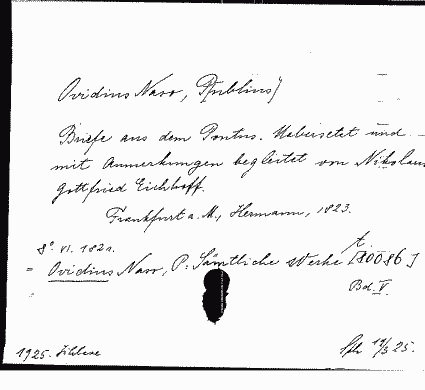 Ovidius Naso, P[ublius]
Briefe aus dem Pontus. Uebersetzt und
mit Anmerkungen begleitet von Nikolaus
Gottfried Eichhoff.
Frankfurt a. M., Hermann, 1823.
8° VI. 182 S.
= Ovidius Naso, P.: Sämtliche Werke [80086]
Bd. V.
1925.
19/3 25.